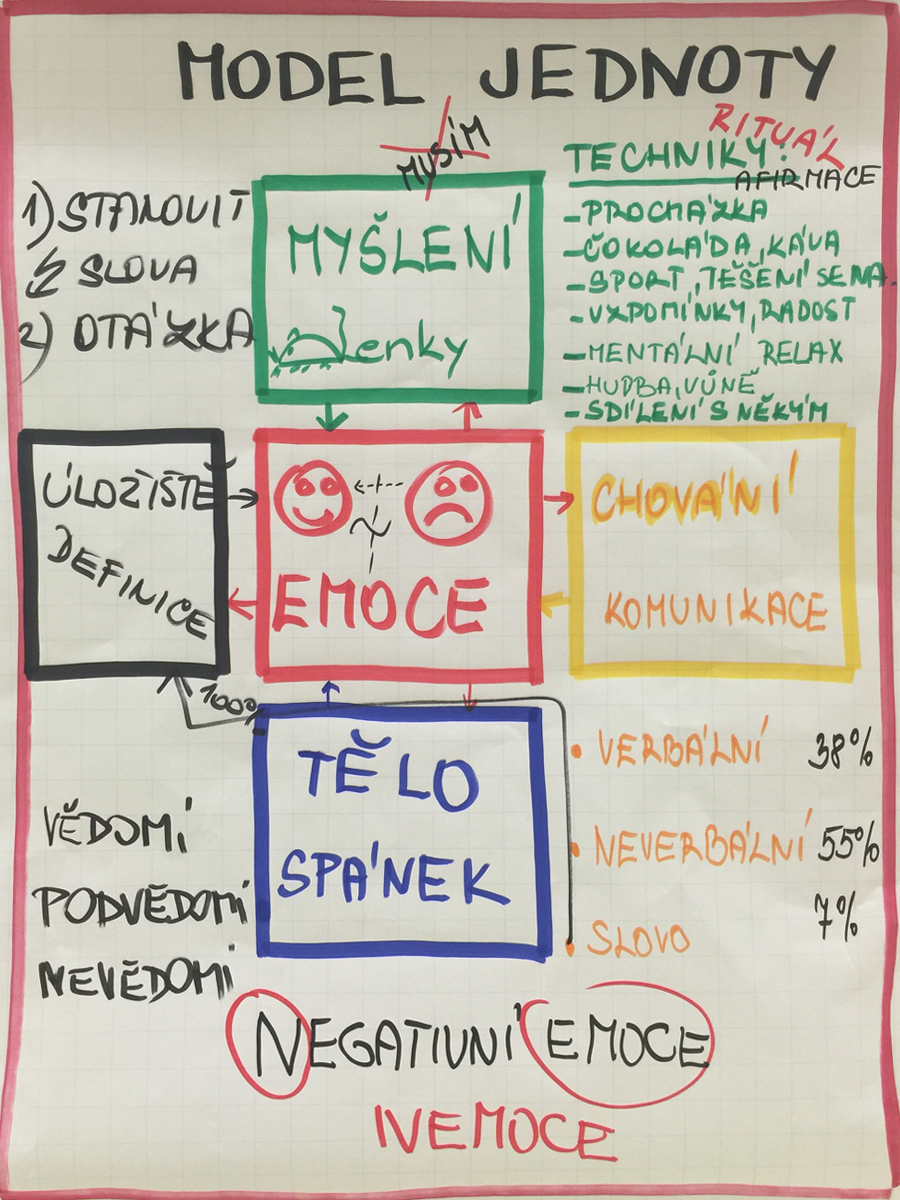 MODEL JEDNOTY
MUSÍM
RITUÁL
TECHNIKY:
AFIRMACE
1) STANOVIT
SLOVA
2) OTÁZKA
MYŠLENÍ
enky
- PROCHÁZKA
- ČOKOLÁDA, KÁVA
- SPORT, TĚŠENÍ SE NA.
- VZPOMÍNKY, RADOST
- MENTÁLNÍ RELAX
- HUDBA, VŮNĚ
- SDÍLENÍ S NĚKÝM
ÚLOŽIŠTĚ
DEFINICE
EMOCE
CHOVÁNÍ
KOMUNIKACE
100%
TĚLO
SPÁNEK
• VERBÁLNÍ 38%
• NEVERBÁLNÍ 55%
• SLOVO 7%
VĚDOMÍ
PODVĚDOMÍ
NEVĚDOMÍ
NEGATIVNÍ EMOCE
NEMOCE